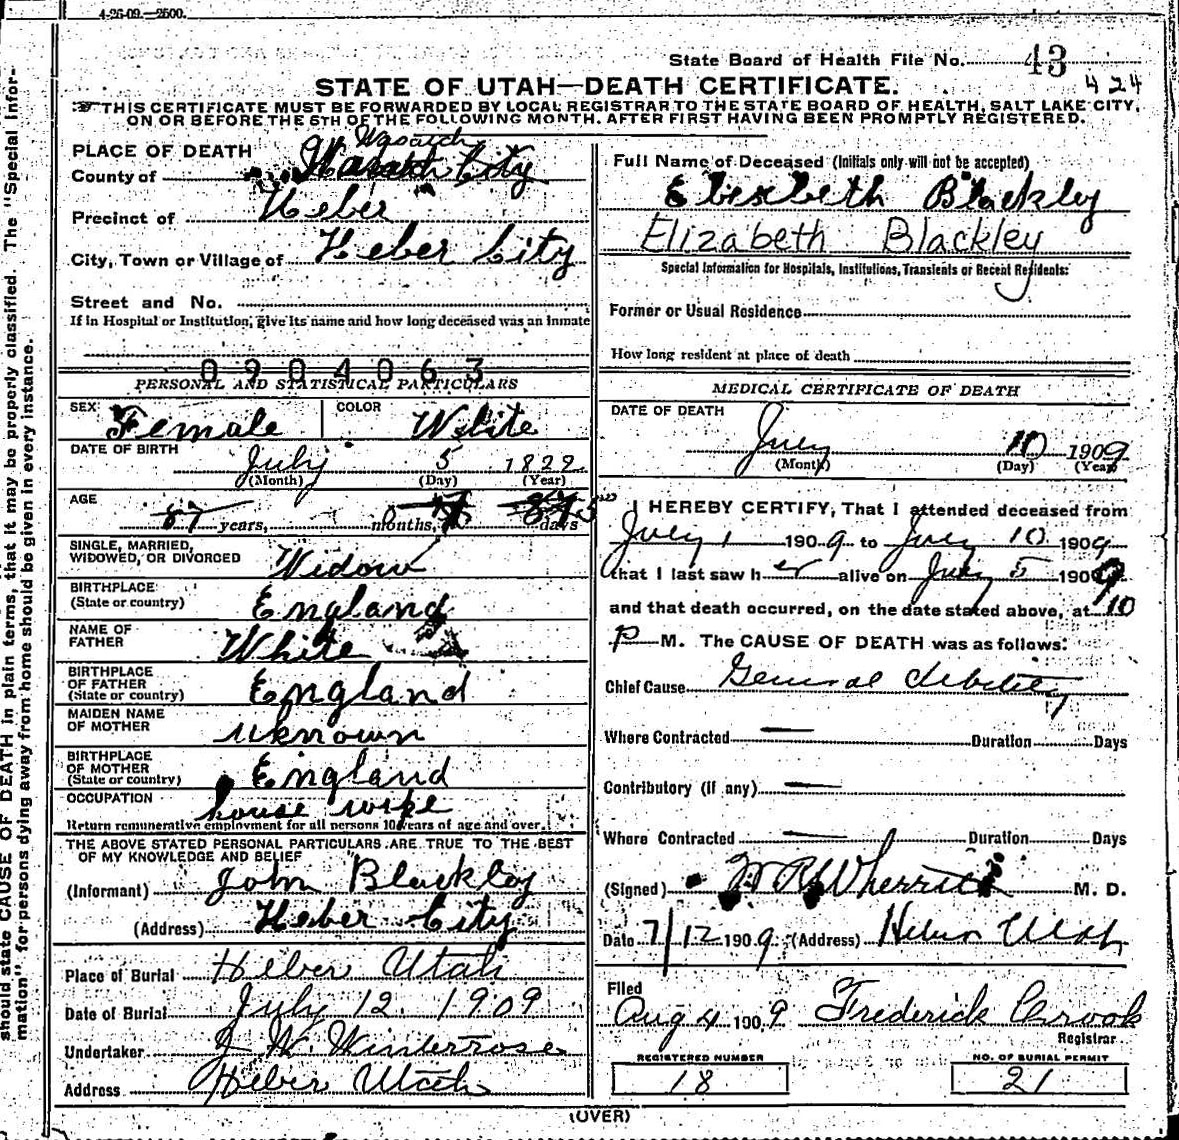 4-26-09.—2500.
State Board of Health File No. 43
424
STATE OF UTAH—DEATH CERTIFICATE.
THIS CERTIFICATE MUST BE FORWARDED BY LOCAL REGISTRAR TO THE STATE BOARD OF HEALTH, SALT LAKE CITY,
ON OR BEFORE THE 5TH OF THE FOLLOWING MONTH. AFTER FIRST HAVING BEEN PROMPTLY REGISTERED.
PLACE OF DEATH
Wasatch
County of Wasatch City
Precinct of Heber
City, Town or Village of Heber City
Street and No.
If in Hospital or Institution, give its name and how long deceased was an inmate
0904063
PERSONAL AND STATISTICAL PARTICULARS
SEX Female COLOR White
DATE OF BIRTH July 5 1822
(Month) (Day) (Year)
AGE 87 years, 0 months, 5 days
SINGLE, MARRIED,
WIDOWED, OR DIVORCED Widow
BIRTHPLACE
(State or country) England
NAME OF
FATHER White
BIRTHPLACE
OF FATHER
(State or country) England
MAIDEN NAME
OF MOTHER uknown
BIRTHPLACE
OF MOTHER
(State or country) England
OCCUPATION house wife
Return remunerative employment for all persons 10 years of age and over.
THE ABOVE STATED PERSONAL PARTICULARS ARE TRUE TO THE BEST
OF MY KNOWLEDGE AND BELIEF
(Informant) John Blackley
(Address) Heber City
Place of Burial Heber Utah
Date of Burial July 12. 1909
Undertaker J W. Winterrose
Address Heber Utah
Full Name of Deceased (Initials only will not be accepted)
Elisebeth Blackley
Elizabeth Blackley
Special Information for Hospitals, Institutions, Transients or Recent Residents:
Former or Usual Residence
How long resident at place of death
MEDICAL CERTIFICATE OF DEATH
DATE OF DEATH
July 10 1909
(Month) (Day) (Year)
I HEREBY CERTIFY, That I attended deceased from
July 1 1909 to July 10 1909
that I last saw her alive on July 5 1909
and that death occurred, on the date stated above, at 10
P M. The CAUSE OF DEATH was as follows:
Chief Cause General debility
Where Contracted — Duration Days
Contributory (if any) —
Where Contracted — Duration Days
(Signed) W R Wherritt M. D.
Date 7/12 1909 (Address) Heber Utah
Filed
Aug 4 1909 Frederick Crook
Registrar
REGISTERED NUMBER
18
NO. OF BURIAL PERMIT
21
(OVER)
should state CAUSE OF DEATH in plain terms, that it may be properly classified. The "Special Infor-
mation" for persons dying away from home should be given in every instance.